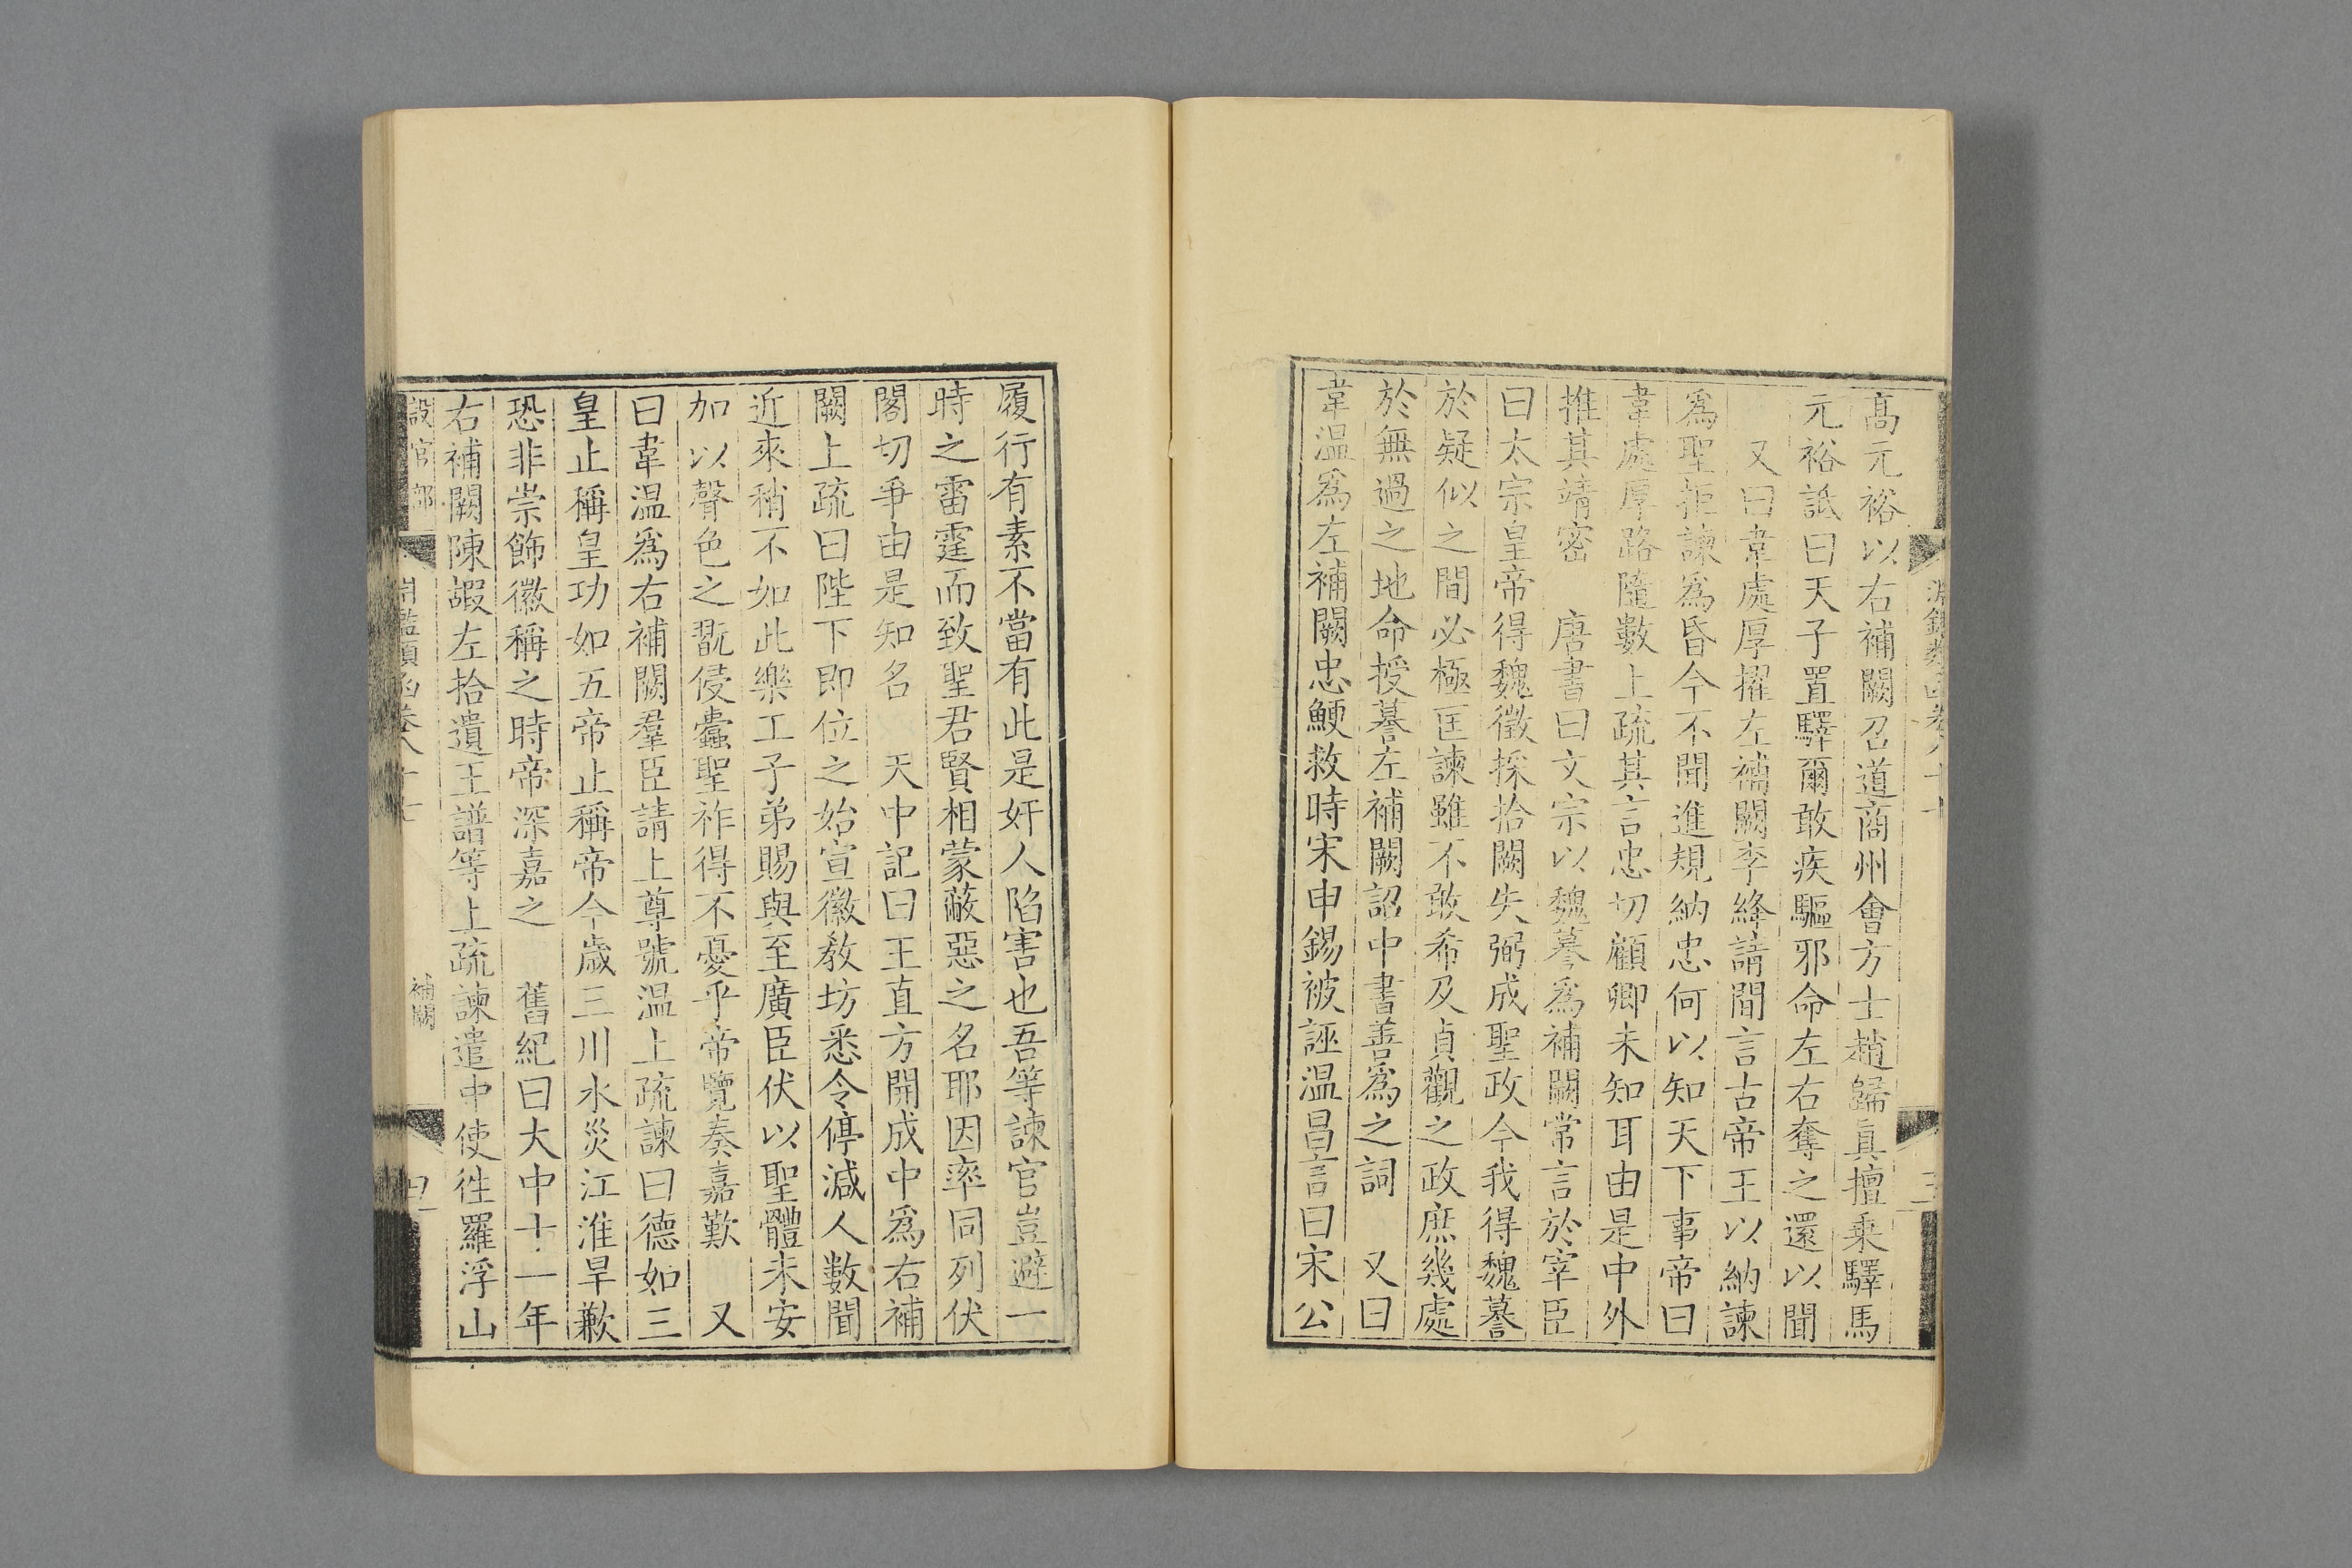 髙元裕以右補闕召道商州會方士趙歸真擅乗驛馬
元裕詆曰天子置驛爾敢疾驅邪命左右奪之還以聞
又曰韋處厚擢左補闕李絳請間言古帝王以納諫
爲聖拒諫爲昏今不聞進規納忠何以知天下事帝曰
韋處厚路隨數上疏其言忠切顧卿未知耳由是中外
推其靖密　唐書曰文宗以魏謩爲補闕常言於宰臣
曰太宗皇帝得魏徵採拾闕失弼成聖政今我得魏謩
於疑似之間必極匡諫雖不敢希及貞觀之政庶幾處
於無過之地命授謩左補闕詔中書善爲之詞　又曰
韋温爲左補闕忠鯁救時宋申錫被誣温昌言曰宋公
履行有素不當有此是奸人陷害也吾等諫官豈避一
時之雷霆而致聖君賢相蒙蔽惡之名耶因率同列伏
閣切爭由是知名　天中記曰王直方開成中爲右補
闕上疏曰陛下即位之始宣徽敎坊悉令停減人數聞
近來稍不如此樂工子弟賜與至廣臣伏以聖體未安
加以聲色之翫侵蠹聖祚得不憂乎帝覽奏嘉歎　又
曰韋温爲右補闕羣臣請上尊號温上疏諫曰德如三
皇止稱皇功如五帝止稱帝今歲三川水災江淮旱歉
恐非崇飾徽稱之時帝深嘉之　舊紀曰大中十一年
右補闕陳嘏左拾遺王譜等上疏諫遣中使徃羅浮山
設官部
補闕